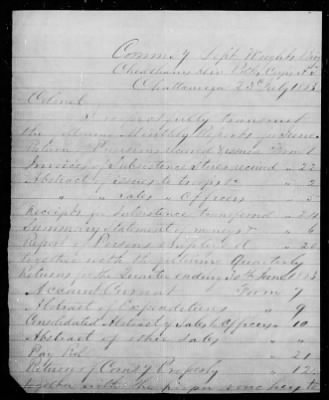 Commsy Dept Wrights Brig
Cheathams Div Polks Corps
Chattanooga 23d July 1863
Colonel
I respectfully transmit
the Monthly Reports for June
Return Provisions received & issued Form 1
Invoices of Subsistence Stores received " 22
Abstract of issues to troops &c " 2
" " Sales to Officers " 5
Receipts for Subsistence transferred " 24
Summary Statement of money &c " 6
Report of Persons employed " 20
together with the following Quarterly
Returns for the Quarter ending 30th June 1863
Account Current Form 7
Abstract of Expenditures " 9
Consolidated Abstract of Sales to Officers " 10
Abstract of other sales " "
Pay Roll " 21
Return of Coms'y Property " 12
together with the proper vouchers to